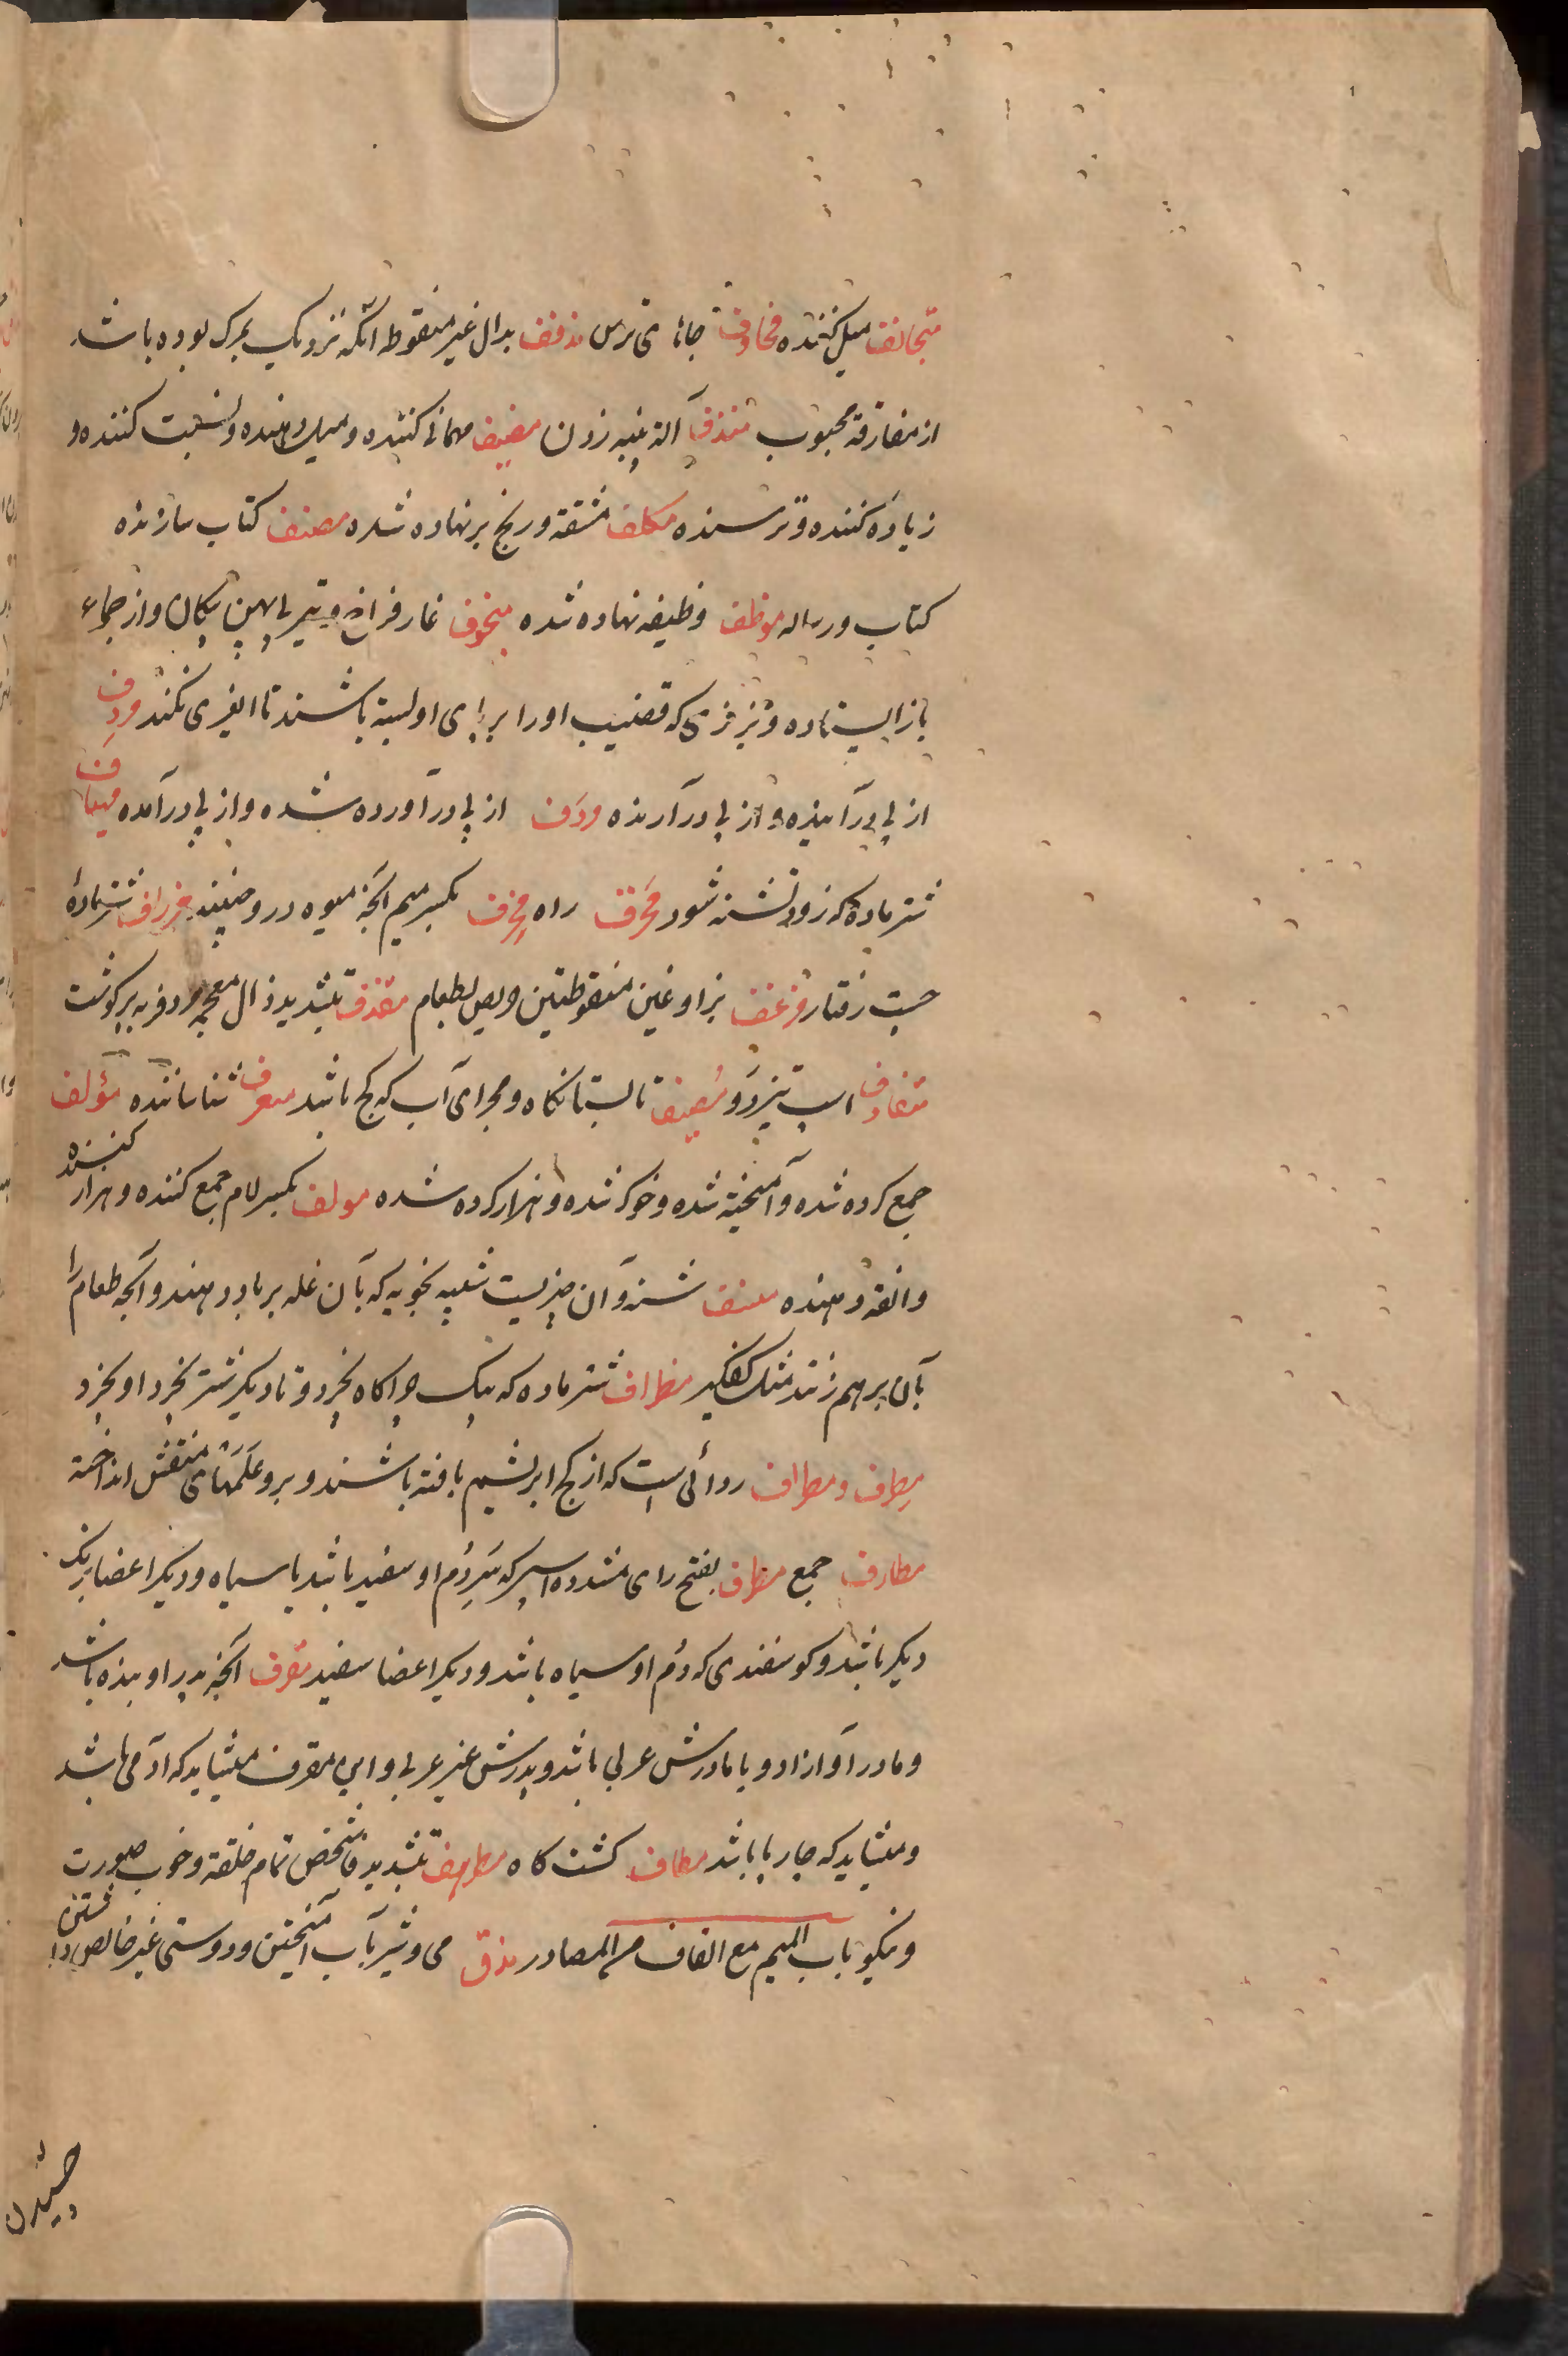 متجانف میل کننده مخاوف جاهای ترس مدنف بدال غیر منقوطه انکه نزدیک بمرک بوده باشد
از مفارقة محبوب مندف آلة پنبه زدن مضیف مهمانی کننده و میل دهنده و نسبت کننده و
زیاده کننده و ترسنده مکلف مشقة و رنج بر نهاده شده مصنف کتاب سازنده
کتاب و رساله موظف وظیفه نهاده شده منجوف غار فراخ و تیری پهن پیکان و از جماع
باز ایستاده و نیز نری که قضیب او را بر پای او بسته باشند تا نفری نکند مردِف
از پی در آینده و از پی در آرنده مردَف از پی در آورده شده و از پی در آمده میهاف
شتر ماده که زود تشنه شود مَخرف راه مِخرف بکسر میم آنچه میوه در و چینند مزراف شتر ماده
جست رفتار مزغف بزا و غین منقوطتین حریص بطعام مقذف بتشدید ذال معجمه مرد فربه پر کوشت
متغارف اسپ تیز رو مُصیف تابستانکاه و مجرای آب که کج باشد معرف شناساننده مؤلف
جمع کرده شده و آمیخته شده و خوکر شده و هزار کرده شده مولف بکسر لام جمع کننده و هزار کننده
و الفة دهنده منسف شنه و آن چیزیست شبیه بچوبه که بآن غله بر باد دهند و آنچه طعام را
بآن بر هم زنند مثل کفکیر مطراف شتر ماده که بیک چراکاه نچرد و تا دیکر شتر نچرد او نچرد
مِطرف و مطراف ردائی است که از کج ابریشم بافته باشند و برو علمهای منقش انداخته
مطارف جمع مطرف بفتح رای مشدده اسپی که سر و دُم او سفید باشد یا سیاه و دیکر اعضا برنک
دیکر باشد و کوسفندی که دُم او سیاه باشد و دیکر اعضا سفید مقرف آنچه پدر او بنده باشد
و مادر او آزاد و یا مادرش عربی باشد و پدرش غیر عربی و این مقرف میشاید که آدمی باشد
و میشاید که چارپا باشد مطاف کشتن کاه مطهف بتشدید شخص تمام خلقة و خوب صورت
و نیکو باب المیم مع القاف من المصادر مذق می و شیر بآب آمیختن و دوستی غیر خالص داشتن